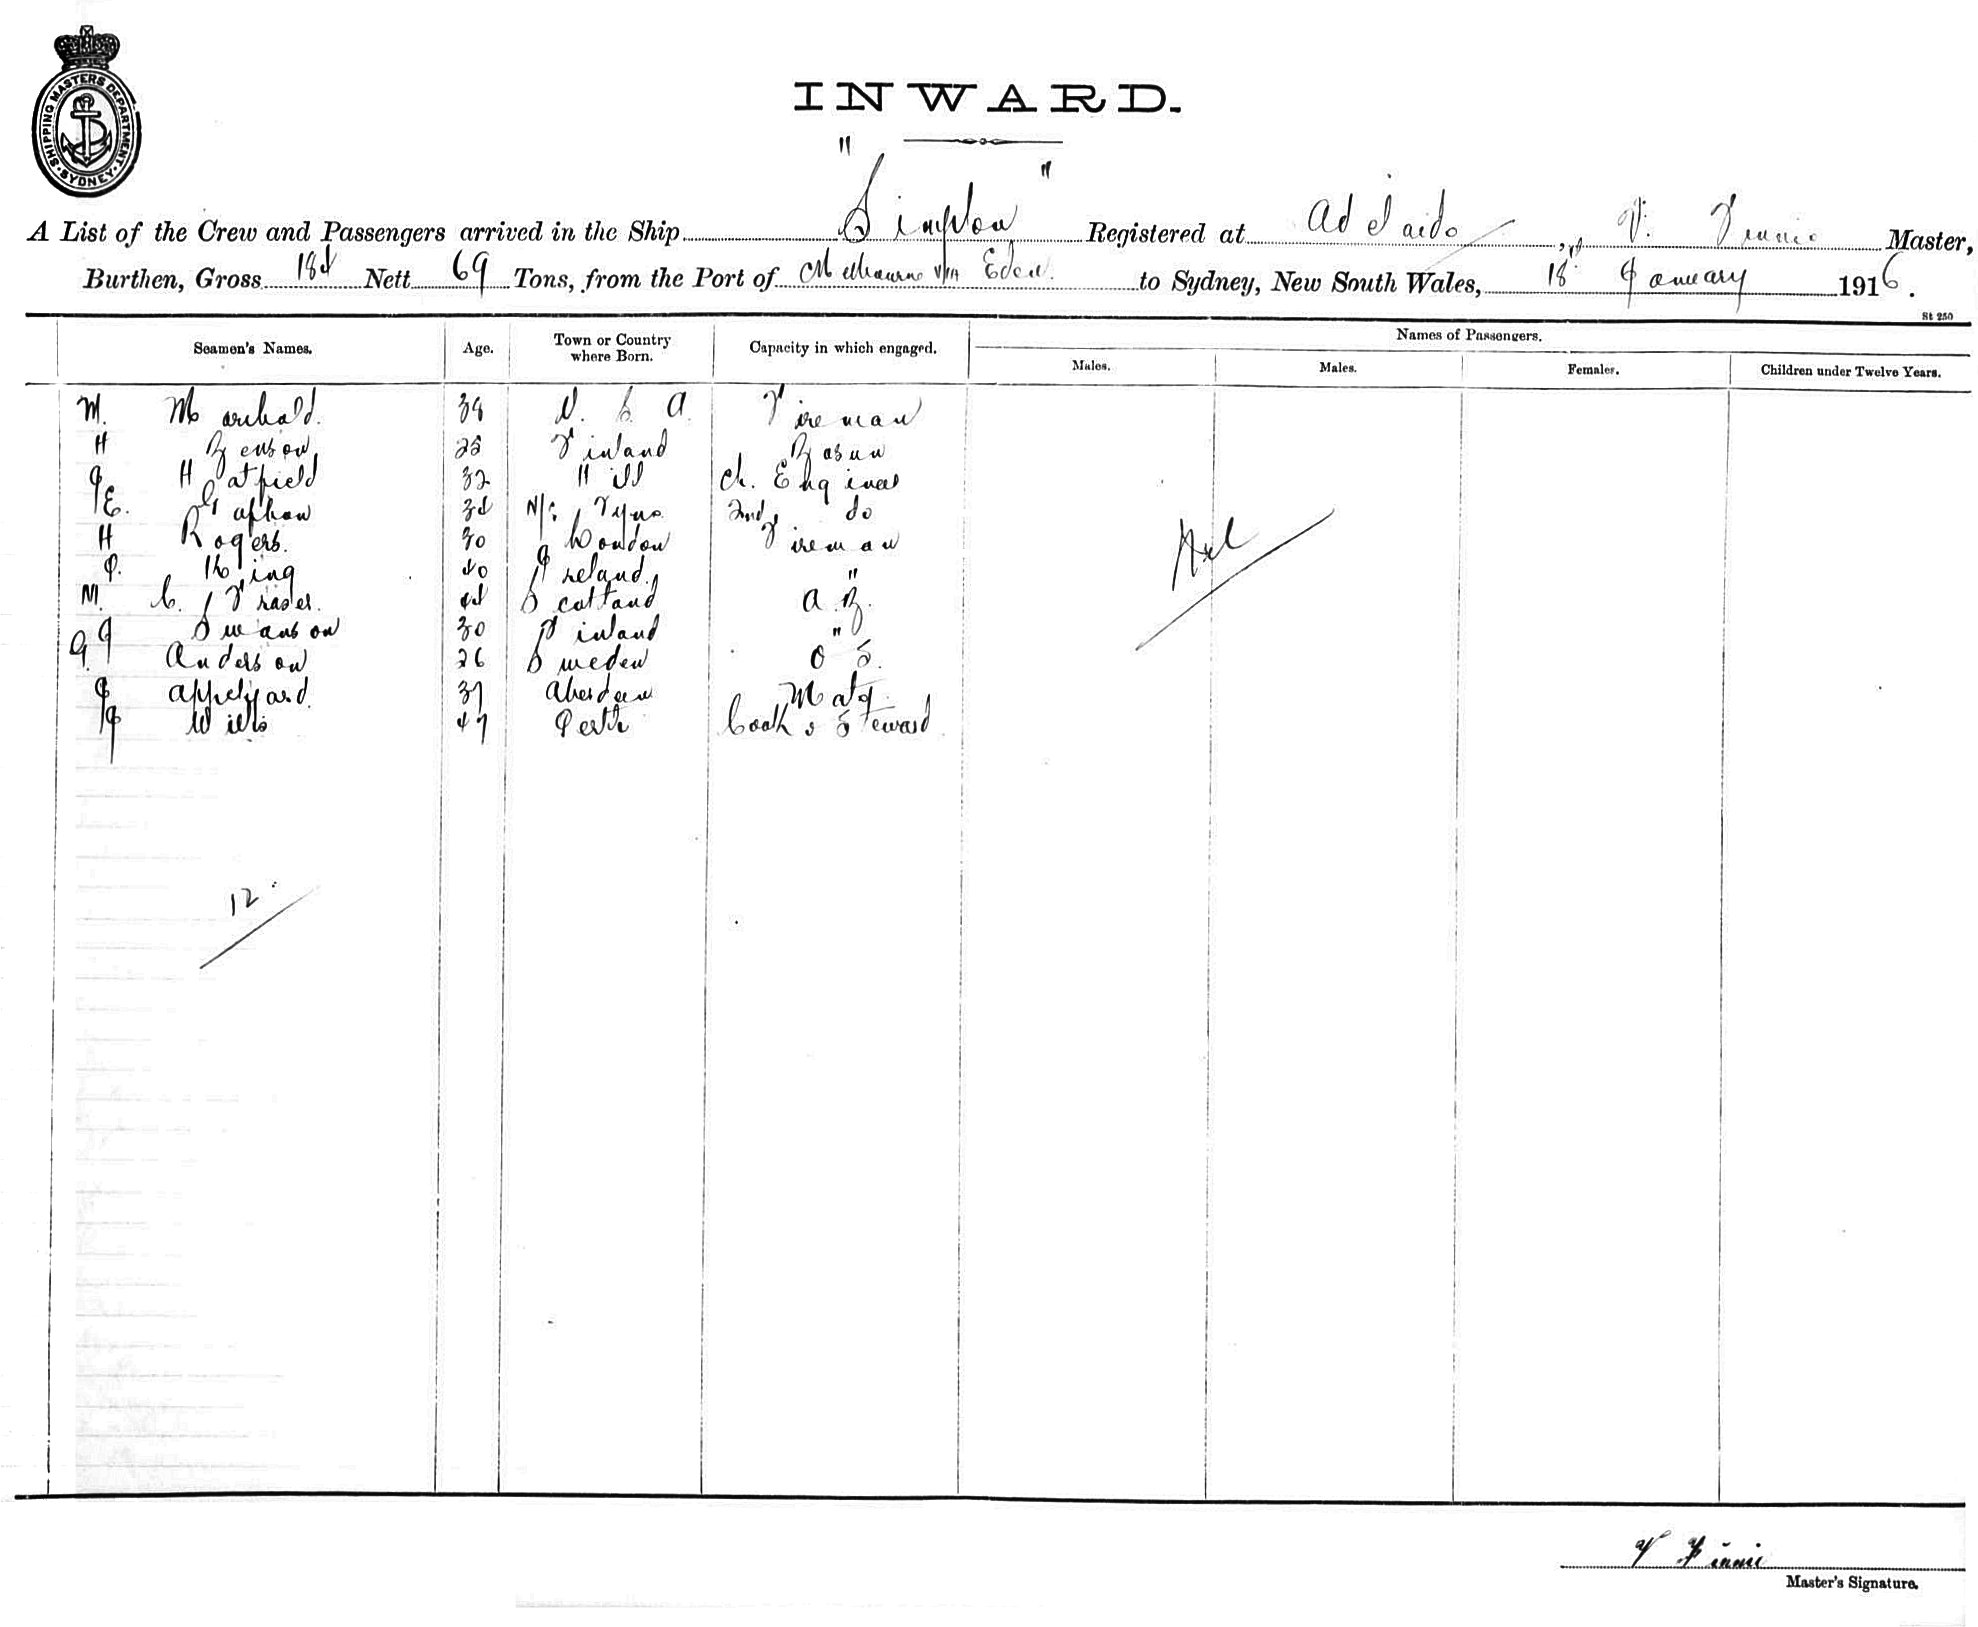 SHIPPING MASTERS DEPARTMENT
SYDNEY
INWARD.
A List of the Crew and Passengers arrived in the Ship "Simplon" Registered at Adelaide, F. Finnie Master,
Burthen, Gross 184 Nett 69 Tons, from the Port of Melbourne via Eden. to Sydney, New South Wales, 18th January 1916.
St 250
Seamen's Names. Age. Town or Country where Born. Capacity in which engaged. Names of Passengers.
Males. Males. Females. Children under Twelve Years.
M. 38 Fireman
H Benson Finland Bosun
J Hatfield 32 Ch. Engineer
E. 34 N/c Tyne 2nd do
H Rogers. 30 London Fireman
P. King 40 Ireland. "
M. C. Fraser. 44 Scotland A.B.
J Swanson 30 Finland "
G. Anderson 26 Sweden O S.
J Appelyard. 37 Aberdeen Mate
J Wills 47 Perth Cook & Steward
Nil
12
F Finnie
Master's Signature.